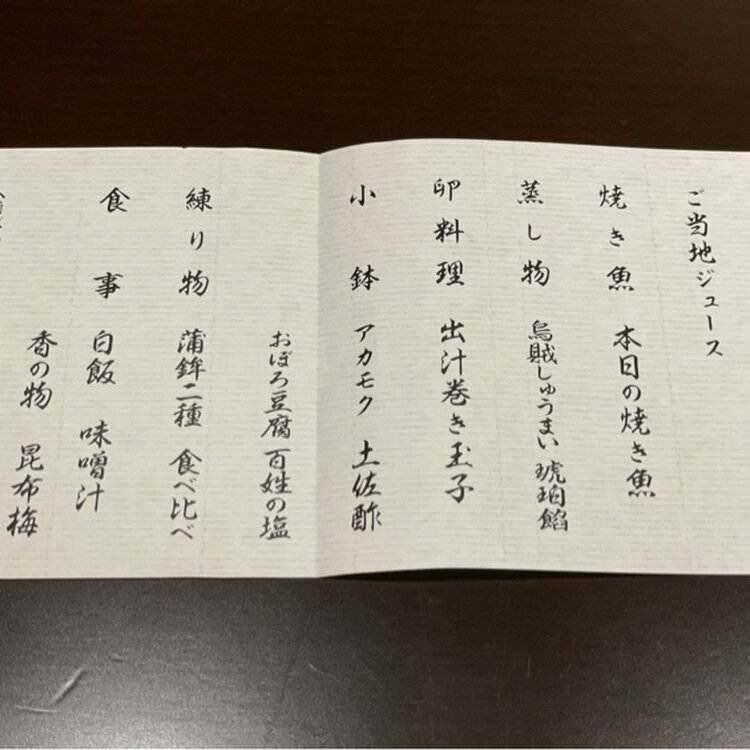 ご当地ジュース
焼き魚 本日の焼き魚
蒸し物 烏賊しゅうまい 琥珀餡
卵料理 出汁巻き玉子
小鉢 アカモク 土佐酢
おぼろ豆腐 百姓の塩
練り物 蒲鉾二種 食べ比べ
食事 白飯 味噌汁
香の物 昆布梅